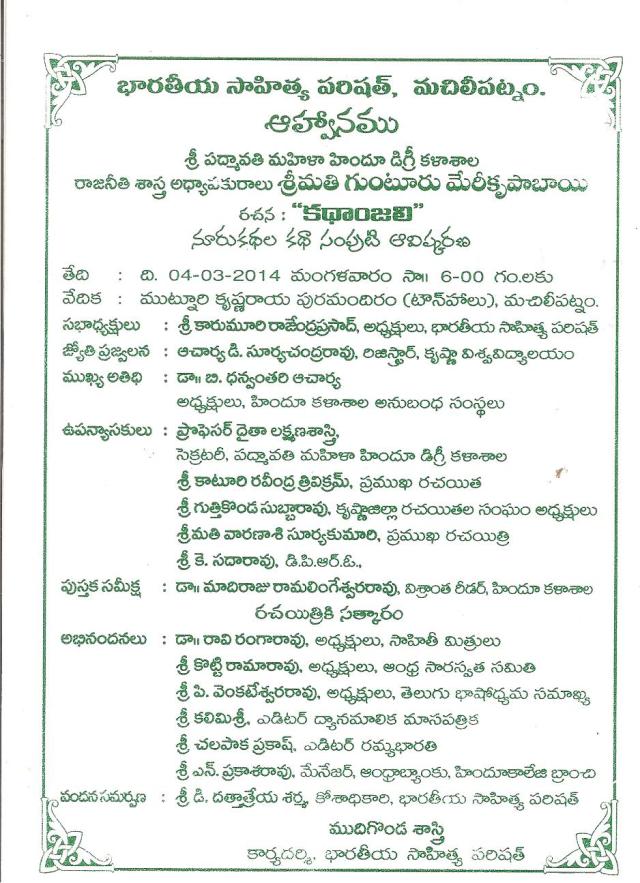 భారతీయ సాహిత్య పరిషత్, మచిలీపట్నం.
ఆహ్వానము
శ్రీ పద్మావతి మహిళా హిందూ డిగ్రీ కళాశాల
రాజనీతి శాస్త్ర అధ్యాపకురాలు శ్రీమతి గుంటూరు మేరీకృపాబాయి
రచన : "కథాంజలి"
నూరుకథల కథా సంపుటి ఆవిష్కరణ
తేది : ది. 04-03-2014 మంగళవారం సా॥ 6-00 గం.లకు
వేదిక : ముట్నూరి కృష్ణరాయ పురమందిరం (టౌన్‌హాలు), మచిలీపట్నం.
సభాధ్యక్షులు : శ్రీ కారుమూరి రాజేంద్రప్రసాద్, అధ్యక్షులు, భారతీయ సాహిత్య పరిషత్
జ్యోతి ప్రజ్వలన : ఆచార్య డి. సూర్యచంద్రరావు, రిజిస్ట్రార్, కృష్ణా విశ్వవిద్యాలయం
ముఖ్య అతిథి : డా॥ బి. ధన్వంతరి ఆచార్య
అధ్యక్షులు, హిందూ కళాశాల అనుబంధ సంస్థలు
ఉపన్యాసకులు : ప్రొఫెసర్ దైతా లక్ష్మణశాస్త్రి,
సెక్రటరీ, పద్మావతి మహిళా హిందూ డిగ్రీ కళాశాల
శ్రీ కాటూరి రవీంద్ర త్రివిక్రమ్, ప్రముఖ రచయిత
శ్రీ గుత్తికొండ సుబ్బారావు, కృష్ణాజిల్లా రచయితల సంఘం అధ్యక్షులు
శ్రీమతి వారణాశి సూర్యకుమారి, ప్రముఖ రచయిత్రి
శ్రీ కె. సదారావు, డి.పి.ఆర్.ఓ.,
పుస్తక సమీక్ష : డా॥ మాదిరాజు రామలింగేశ్వరరావు, విశ్రాంత రీడర్, హిందూ కళాశాల
రచయిత్రికి సత్కారం
అభినందనలు : డా॥ రావి రంగారావు, అధ్యక్షులు, సాహితీ మిత్రులు
శ్రీ కొట్టి రామారావు, అధ్యక్షులు, ఆంధ్ర సారస్వత సమితి
శ్రీ పి. వెంకటేశ్వరరావు, అధ్యక్షులు, తెలుగు భాషోధ్యమ సమాఖ్య
శ్రీ కలిమిశ్రీ, ఎడిటర్ ద్యానమాలిక మాసపత్రిక
శ్రీ చలపాక ప్రకాష్, ఎడిటర్ రమ్యభారతి
శ్రీ ఎన్. ప్రకాశరావు, మేనేజర్, ఆంధ్రాబ్యాంకు, హిందూకాలేజి బ్రాంచి
వందన సమర్పణ : శ్రీ డి. దత్తాత్రేయ శర్మ, కోశాధికారి, భారతీయ సాహిత్య పరిషత్
ముదిగొండ శాస్త్రి
కార్యదర్శి, భారతీయ సాహిత్య పరిషత్